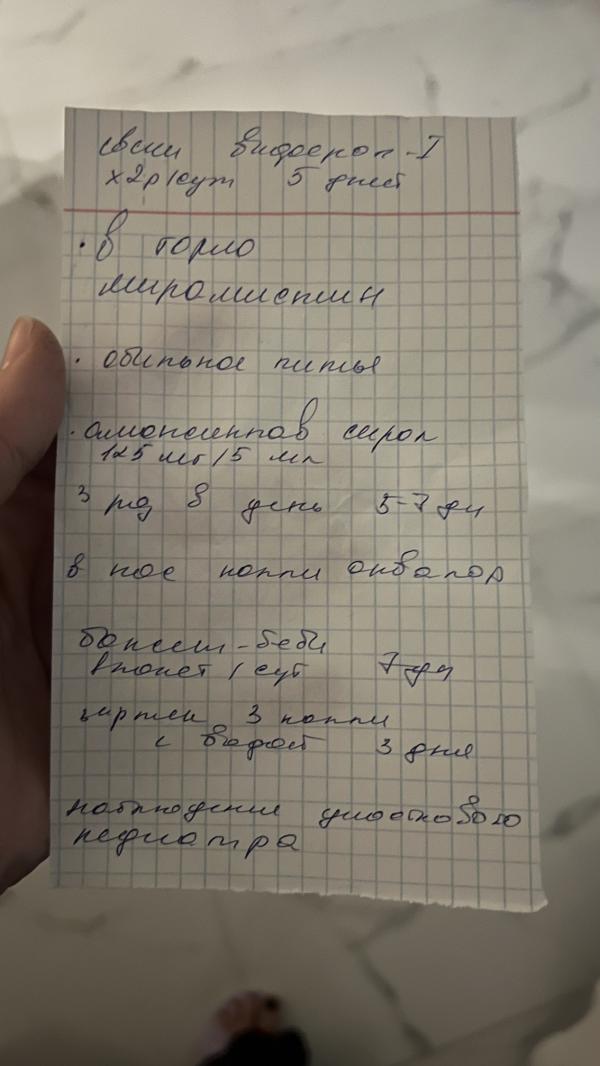 свечи виферон-I
х2р/сут 5 дней
· в горло
мирамистин
· обильное питье
· амоксиклав сироп
125 мг/5 мл
3 раз в день 5-7 дн
в нос капли аквалор
баксет-беби
1 пакет/сут 7 дн
зиртек 3 капли
с водой 3 дня
наблюдение участкового
педиатра